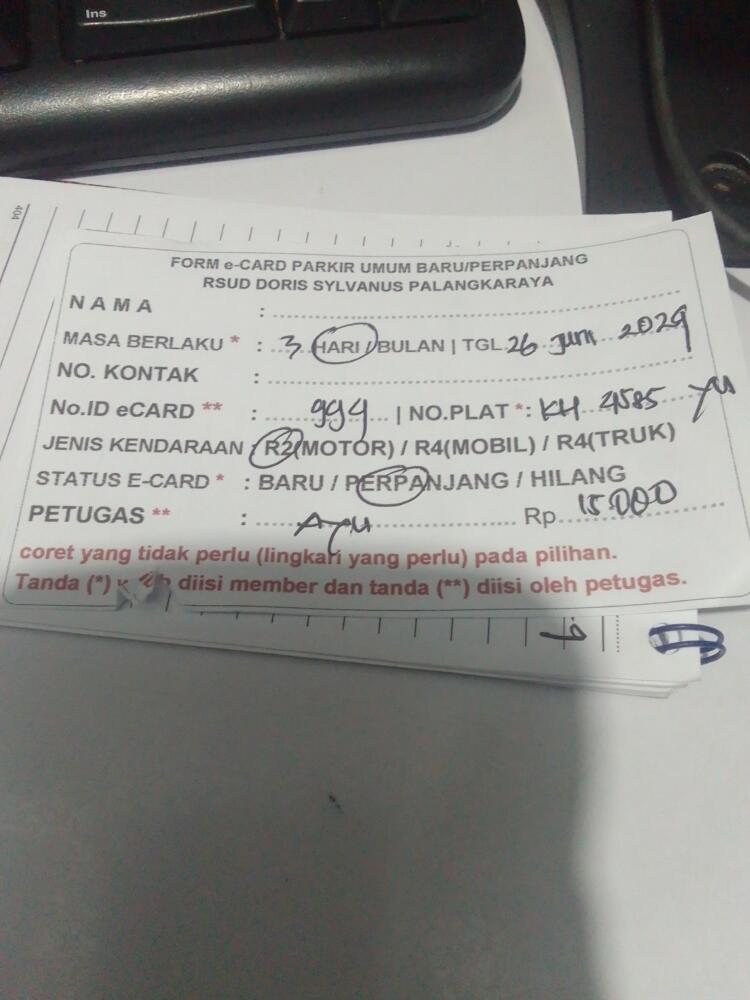 Ins
404
FORM e-CARD PARKIR UMUM BARU/PERPANJANG
RSUD DORIS SYLVANUS PALANGKARAYA
NAMA :
MASA BERLAKU * : 3 HARI / BULAN | TGL 26 Juni 2029
NO. KONTAK :
No.ID eCARD ** : 994 | NO.PLAT *: KH 4585 YU
JENIS KENDARAAN : R2(MOTOR) / R4(MOBIL) / R4(TRUK)
STATUS E-CARD * : BARU / PERPANJANG / HILANG
PETUGAS ** : Ayu Rp 15.000
coret yang tidak perlu (lingkari yang perlu) pada pilihan.
Tanda (*) diisi member dan tanda (**) diisi oleh petugas.